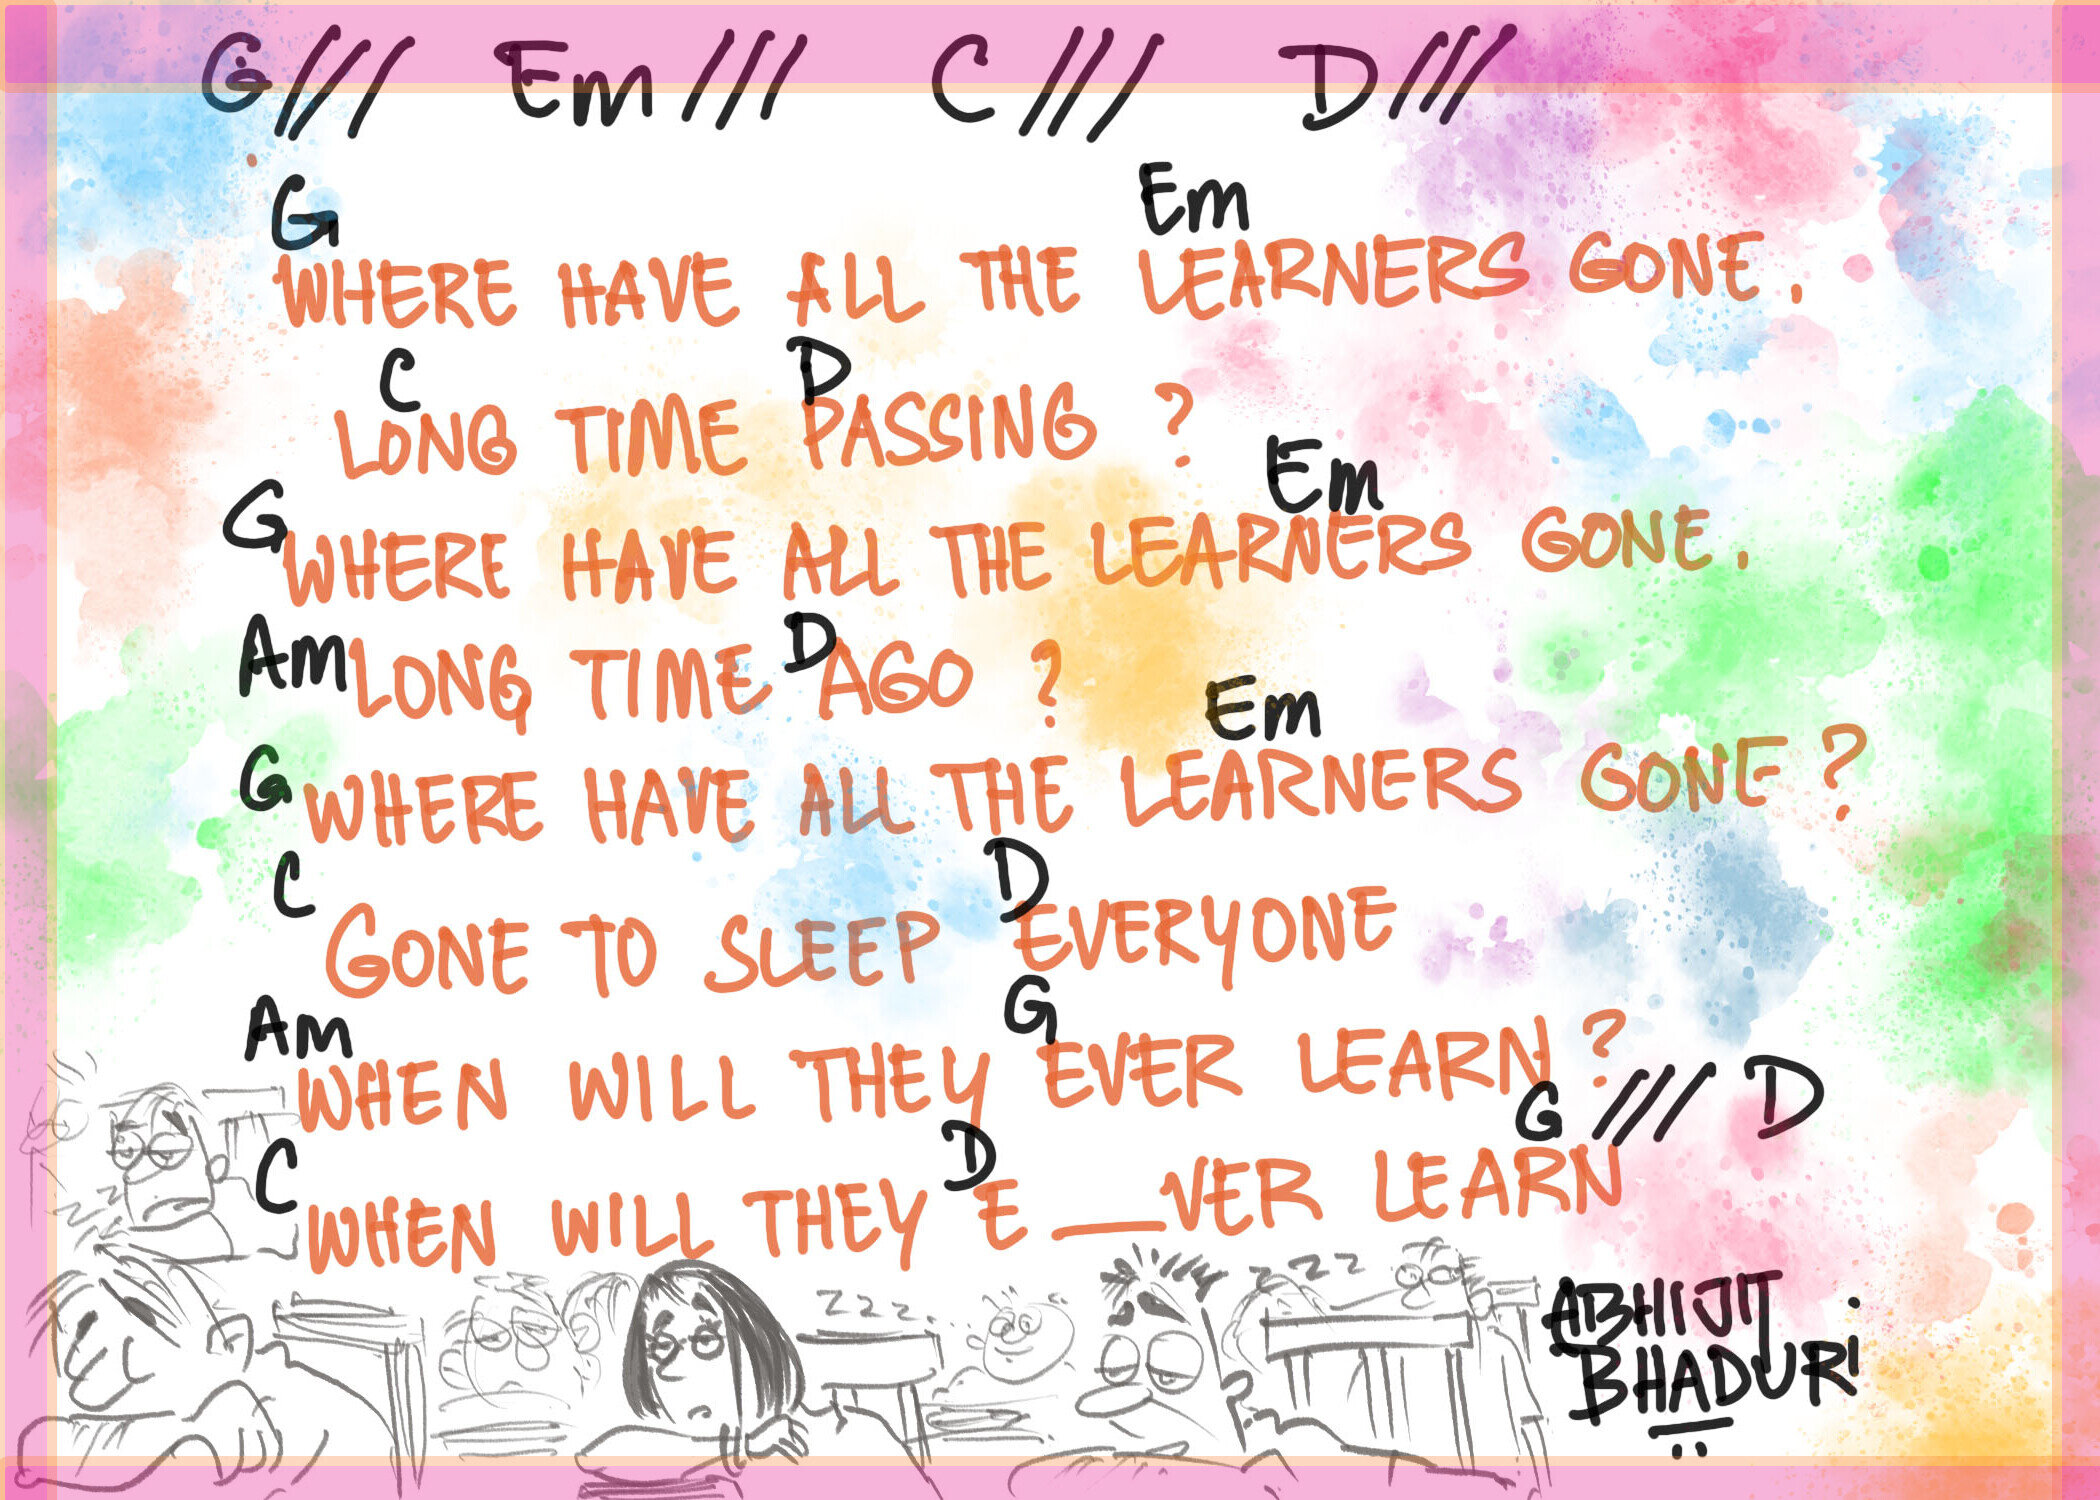 G/// Em/// C/// D///
G Em
WHERE HAVE ALL THE LEARNERS GONE,
C D
LONG TIME PASSING ?
G Em
WHERE HAVE ALL THE LEARNERS GONE.
Am D
LONG TIME AGO ?
G Em
WHERE HAVE ALL THE LEARNERS GONE ?
C D
GONE TO SLEEP EVERYONE
Am G
WHEN WILL THEY EVER LEARN ?
C D G /// D
WHEN WILL THEY E__VER LEARN
zz
zzz
zzz.
ABHIJIT
BHADURI